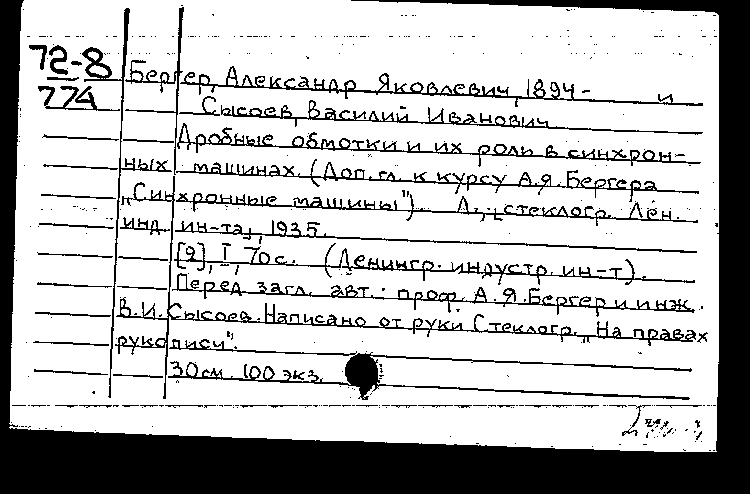 72-8
774
Бергер, Александр Яковлевич, 1894- и
Сысоев, Василий Иванович
Дробные обмотки и их роль в синхрон-
ных машинах. (Доп. гл. к курсу А.Я.Бергера
„Синхронные машины"). Л., стеклогр. Лен.
инд. ин-та, 1935.
[2], I, 70 с. (Ленингр. индустр. ин-т).
Перед загл. авт.: проф. А.Я.Бергер и инж.
В.И.Сысоев. Написано от руки. Стеклогр. „На правах
рукописи".
30 см. 100 экз.